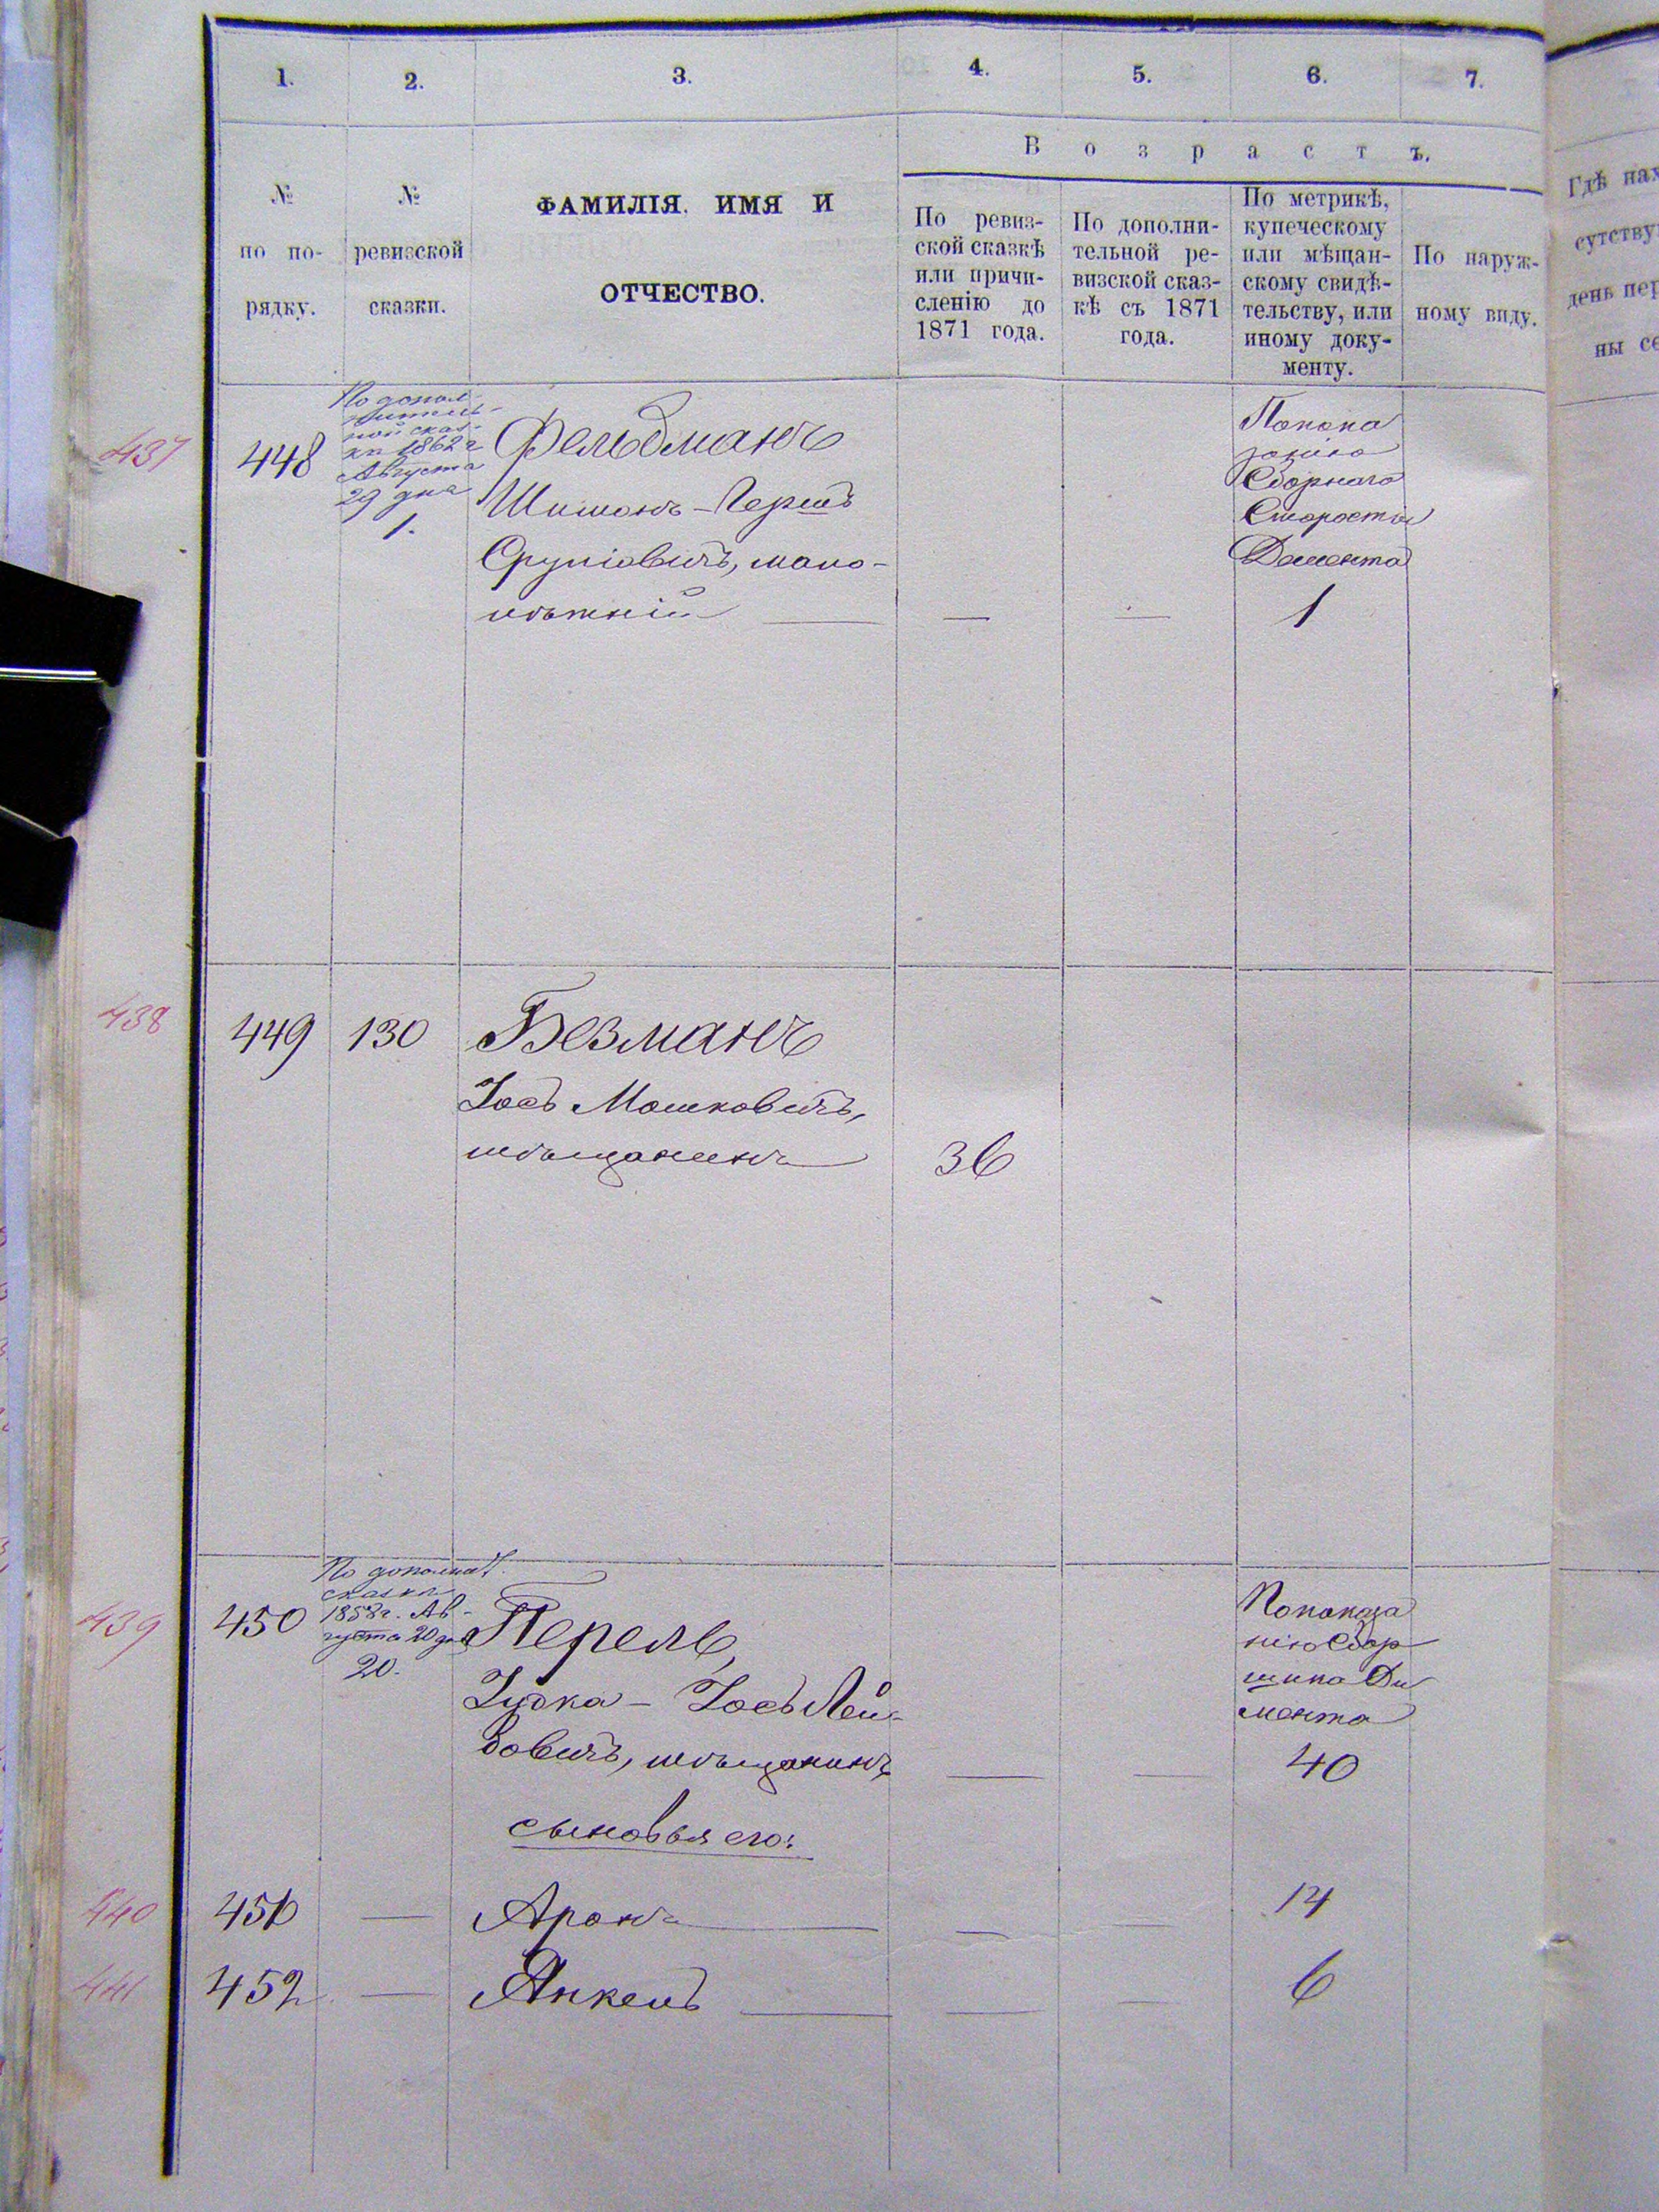 1.
2.
3.
4.
5.
6.
7.
В о з р а с т ъ.
№ по по-
рядку.
№ ревизской
сказки.
ФАМИЛІЯ. ИМЯ И
ОТЧЕСТВО.
По ревиз-
ской сказкѣ
или причи-
сленію до
1871 года.
По дополни-
тельной ре-
визской сказ-
кѣ съ 1871
года.
По метрикѣ,
купеческому
или мѣщан-
скому свидѣ-
тельству, или
иному доку-
менту.
По наруж-
ному виду.
Гдѣ нах
сутству
день пер
ны се
437
448
По допол-
нитель-
ной сказ-
кѣ 1862 г
Августа
29 дня
1.
Фельдманъ
Шимонъ-Гершъ
Сруліовичъ, мало-
лѣтній
— —
По пока
занію
Сборнаго
Старосты
Демента
1
438
449 130 Безманъ
Іосъ Мошковичъ,
мѣщанинъ 36
439
450
По дополнит.
сказкѣ
1858 г. Ав-
густа 20 дня
20.
Перель,
Іудка - Іосъ Лей-
бовичъ, мѣщанинъ — —
По показа
нію Сбор
щика Ди
мента
40
сыновья его:
440 451 — Аронъ — — 14
441 452 — Янкель — — 6